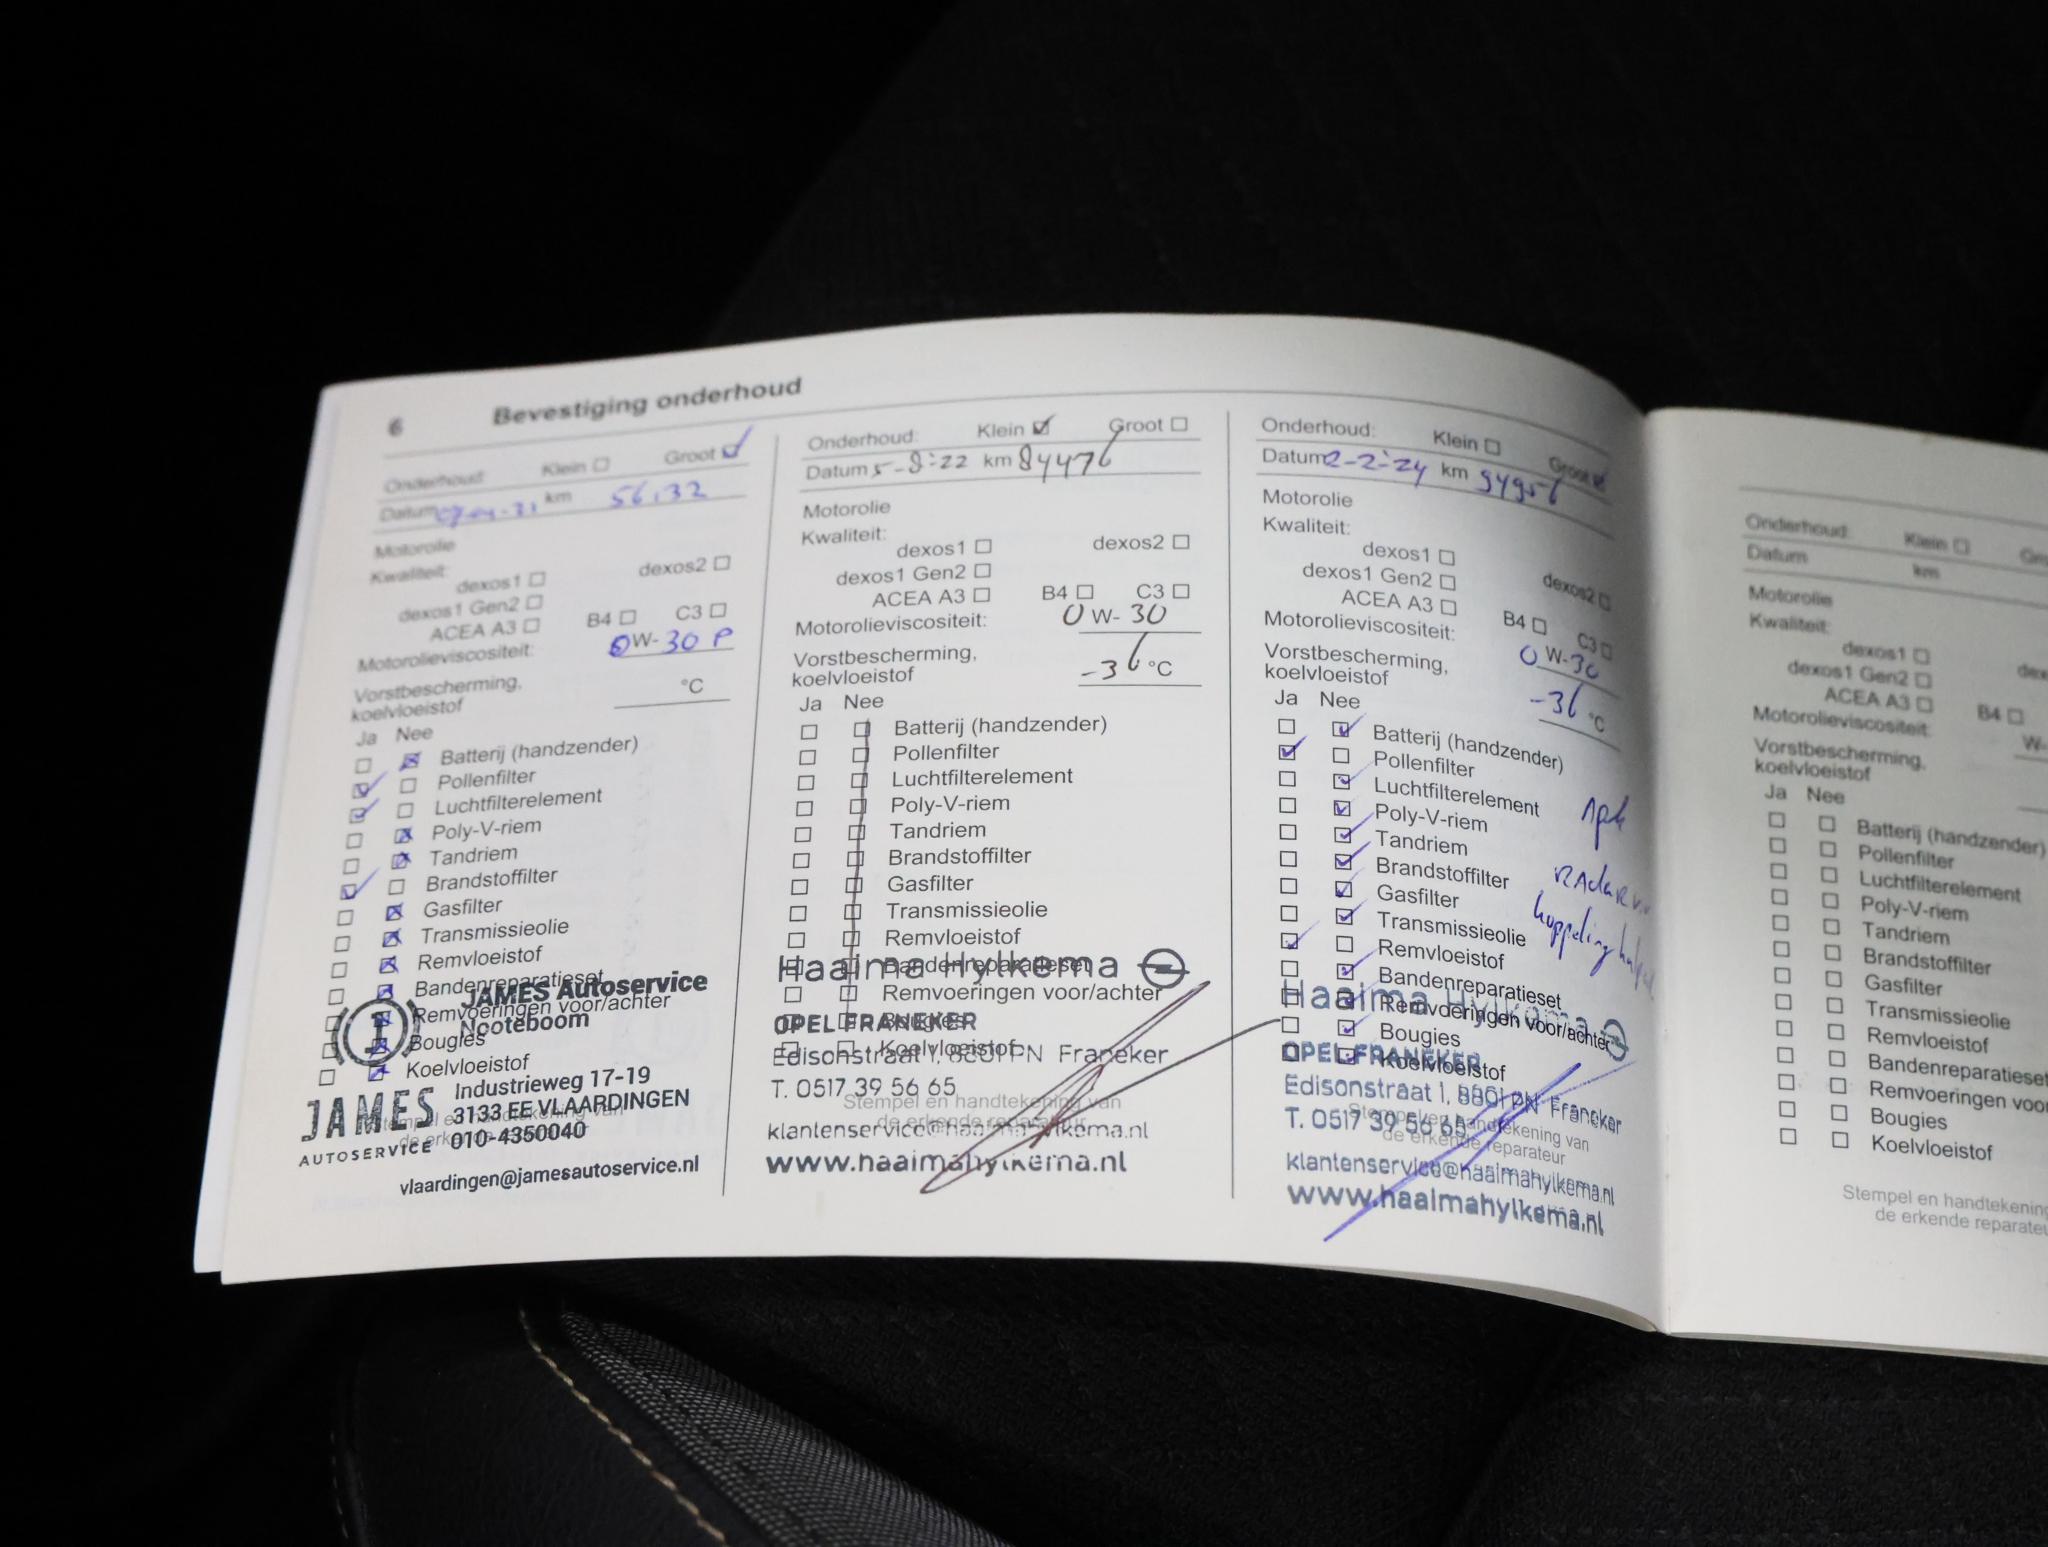 6 Bevestiging onderhoud
Onderhoud: Klein Groot
Datum km 56132
Motorolie
Kwaliteit:
dexos1 dexos2
dexos1 Gen2
ACEA A3 B4 C3
Motorolieviscositeit: 0 W- 30 P
Vorstbescherming,
koelvloeistof °C
Ja Nee
Batterij (handzender)
Pollenfilter
Luchtfilterelement
Poly-V-riem
Tandriem
Brandstoffilter
Gasfilter
Transmissieolie
Remvloeistof
Bandenreparatieset
Remvoeringen voor/achter
Bougies
Koelvloeistof
Stempel en handtekening van
de erkende reparateur
JAMES Autoservice
Nooteboom
Industrieweg 17-19
3133 EE VLAARDINGEN
010-4350040
vlaardingen@jamesautoservice.nl
JAMES
AUTOSERVICE
Onderhoud: Klein Groot
Datum 5-8-22 km 84476
Motorolie
Kwaliteit:
dexos1 dexos2
dexos1 Gen2
ACEA A3 B4 C3
Motorolieviscositeit: 0 W- 30
Vorstbescherming,
koelvloeistof -36 °C
Ja Nee
Batterij (handzender)
Pollenfilter
Luchtfilterelement
Poly-V-riem
Tandriem
Brandstoffilter
Gasfilter
Transmissieolie
Remvloeistof
Bandenreparatieset
Remvoeringen voor/achter
Bougies
Koelvloeistof
Stempel en handtekening van
de erkende reparateur
Haaima Hylkema
OPEL FRANEKER
Edisonstraat 1, 8801 PN Franeker
T. 0517 39 56 65
klantenservice@haaimahylkema.nl
www.haaimahylkema.nl
Onderhoud: Klein Groot
Datum 2-2-24 km 94956
Motorolie
Kwaliteit:
dexos1 dexos2
dexos1 Gen2
ACEA A3 B4 C3
Motorolieviscositeit: 0 W-30
Vorstbescherming,
koelvloeistof -36 °C
Ja Nee
Batterij (handzender)
Pollenfilter
Luchtfilterelement
Poly-V-riem
Tandriem
Brandstoffilter
Gasfilter
Transmissieolie
Remvloeistof
Bandenreparatieset
Remvoeringen voor/achter
Bougies
Koelvloeistof
Apk
Stempel en handtekening van
de erkende reparateur
Haaima Hylkema
OPEL FRANEKER
Edisonstraat 1, 8801 PN Franeker
T. 0517 39 56 65
klantenservice@haaimahylkema.nl
www.haaimahylkema.nl
Onderhoud: Klein
Datum km
Motorolie
Kwaliteit:
dexos1
dexos1 Gen2
ACEA A3 B4
Motorolieviscositeit: W-
Vorstbescherming,
koelvloeistof
Ja Nee
Batterij (handzender)
Pollenfilter
Luchtfilterelement
Poly-V-riem
Tandriem
Brandstoffilter
Gasfilter
Transmissieolie
Remvloeistof
Bandenreparatieset
Remvoeringen voor
Bougies
Koelvloeistof
Stempel en handtekening
de erkende reparateu